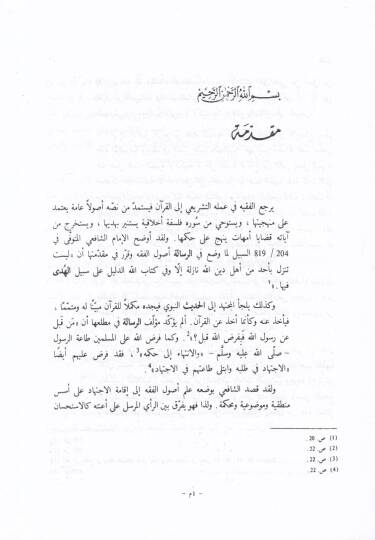 بسم الله الرحمن الرحيم
مقدمة
يرجع الفقيه في عمله التشريعي إلى القرآن فيستمدّ من نصّه أصولاً عامة يعتمد
على منهجيتها، ويستوحي من سُوره فلسفة أخلاقية يستنير بهديها، ويستخرج من
آياته قضايا أمهات ينهج على حكمها. ولقد أوضح الإمام الشافعي المتوفى في
204 / 819 السبيل لما وضع في الرسالة أصول الفقه وقرّر في مقدّمتها أن «ليست
تنزل بأحد من أهل دين الله نازلة إلّا وفي كتاب الله الدليل على سبيل الهُدى
فيها.»¹
وكذلك يلجأ المجتهد إلى الحديث النبوي فيجده مكملًا للقرآن مبيّنًا له ومتممًا،
فيأخذ عنه وكأنما أخذ عن القرآن. ألم يؤكّد مؤلّف الرسالة في مطلعها أن «مَن قَبِلَ
عن رسول الله فبِفرض الله قبل؟»². وكما فرض الله على المسلمين طاعة الرسول
- صلّى الله عليه وسلّم - «والانتهاء إلى حكمه»³، فقد فرض عليهم أيضًا
«الاجتهاد في طلبه وابتلى طاعتهم في الاجتهاد».⁴
ولقد قصد الشافعي بوضعه علم أصول الفقه إلى إقامة الاجتهاد على أسس
منطقية وموضوعية ومحكمة. ولذا فهو يفرّق بين الرأي المرسل على أعنته كالاستحسان
(1) ص. 20.
(2) ص. 22.
(3) ص. 22.
(4) ص. 22.